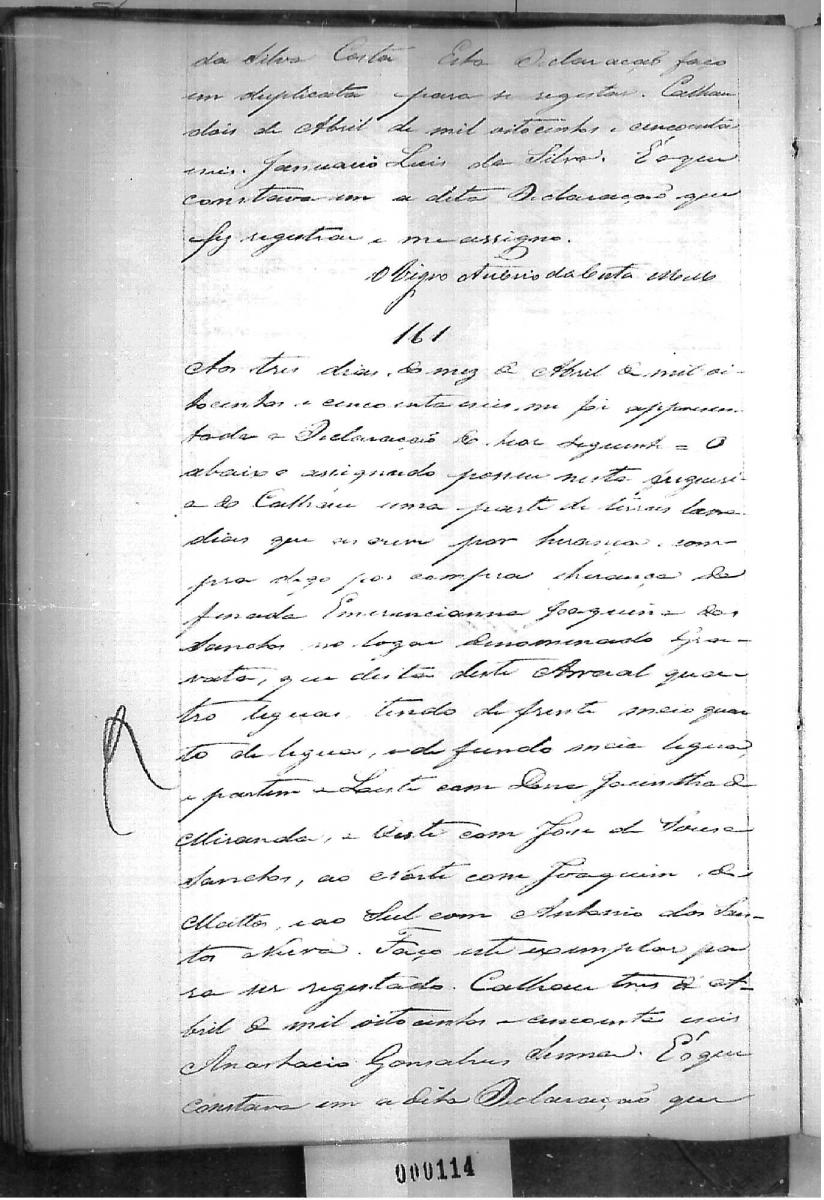 da Silva Costa Esta Declaração faço
em duplicata para se registar. Calhau
dois de Abril de mil oitocentos e cincoenta
e seis. Januario Luis da Silva. E o que
constava em a dita Declaração que
fiz registrar e me assigno.
O Vigro Antonio da Costa
161
Aos tres dias do mez de Abril de mil oi-
tocentos e cincoenta e seis me foi appresen-
tada a Declaração do theor seguinte = O
abaixo assignado possue nesta Freguesi-
a do Calháu uma parte de terras lava-
dias que as ouve por herança com-
pra digo por compra e herança da
finada Emerencianna Joaquina dos
Sanctos no logar denominado Gra-
vatá, que dista deste Arraial qua-
tro leguas tendo de frente meio quar-
to de legua, e de fundo meia legua,
e partem a Leste com Dona Jacintha de
Miranda, a Oeste com Jose de Sousa
Sanctos, ao Norte com Joaquim de
Mattos, e ao Sul com Antonio dos San-
tos Neiva. Faço este exemplar pa
ra ser registado. Calhau tres de A-
bril de mil oitocentos e cincoenta e seis
Anastacio Gonsalves Lima. E o que
constava em a dita Declaração que
000114